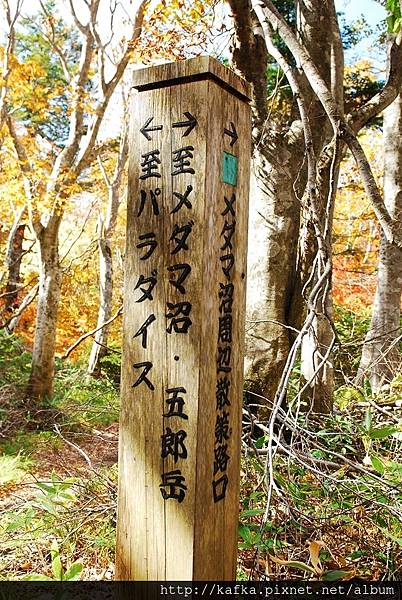 →至メダマ沼・五郎岳
←至パラダイス
→メダマ沼周辺散策路口
http://kafka.pixnet.net/album